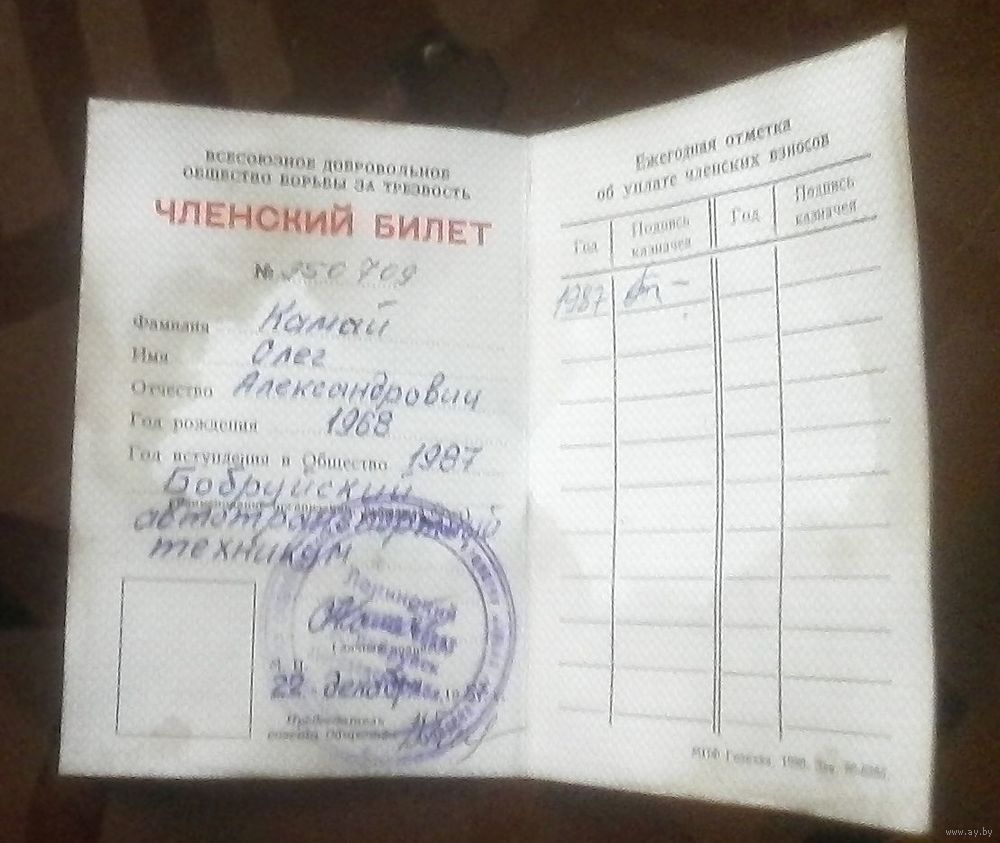 ВСЕСОЮЗНОЕ ДОБРОВОЛЬНОЕ
ОБЩЕСТВО БОРЬБЫ ЗА ТРЕЗВОСТЬ
ЧЛЕНСКИЙ БИЛЕТ
№ 350709
Фамилия Камай
Имя Олег
Отчество Александрович
Год рождения 1968
Год вступления в Общество 1987
Бобруйский
автотранспортный
техникум
Ленинский
М. П.
22 декабря 1987 г.
Председатель
Ежегодная отметка
об уплате членских взносов
Год Подпись казначея Год Подпись казначея
1987
www.ay.by